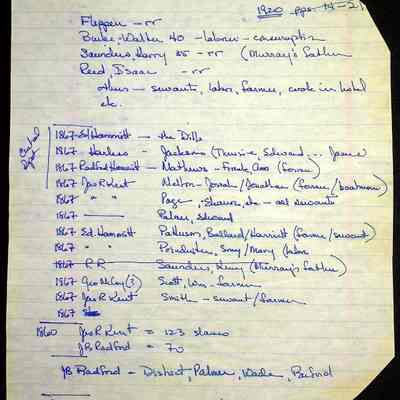 1920 pps. 14-21
Flippen - rr
Banks, Walker 40 - laborer - consumption
Saunders, Harry 35 - rr (Murray's father
Reed, Isaac - rr
others - servants, labor, farmer, cook in hotel
etc.
Central Depot
1867 Ed Hammitt - the Dills
1867 Harless - Jacksons ( Edward ... James
1867 Radford Hammit - Mathews - Frank, Ann (farmer)
1867 Jas R Kent Nelson - Josiah/Jonathan (farmer/boatman)
1867 " " Page, etc - all servants
1867 —— Palmer, Edward
1867 Ed. Hammitt Patterson, Ballard/Harriett (farmer/servant)
1867 " " Poindexter, Smy/Mary (labor
1867 R R Saunders, King (Murray's father)
1867 Geo McCoy (?) Scott, Wm - farmer
1867 Jas R. Kent Smith - servant/farmer
1867
1860 Jas R Kent = 123 slaves
JB Radford = 70
JB Radford - Palmer, Wade,